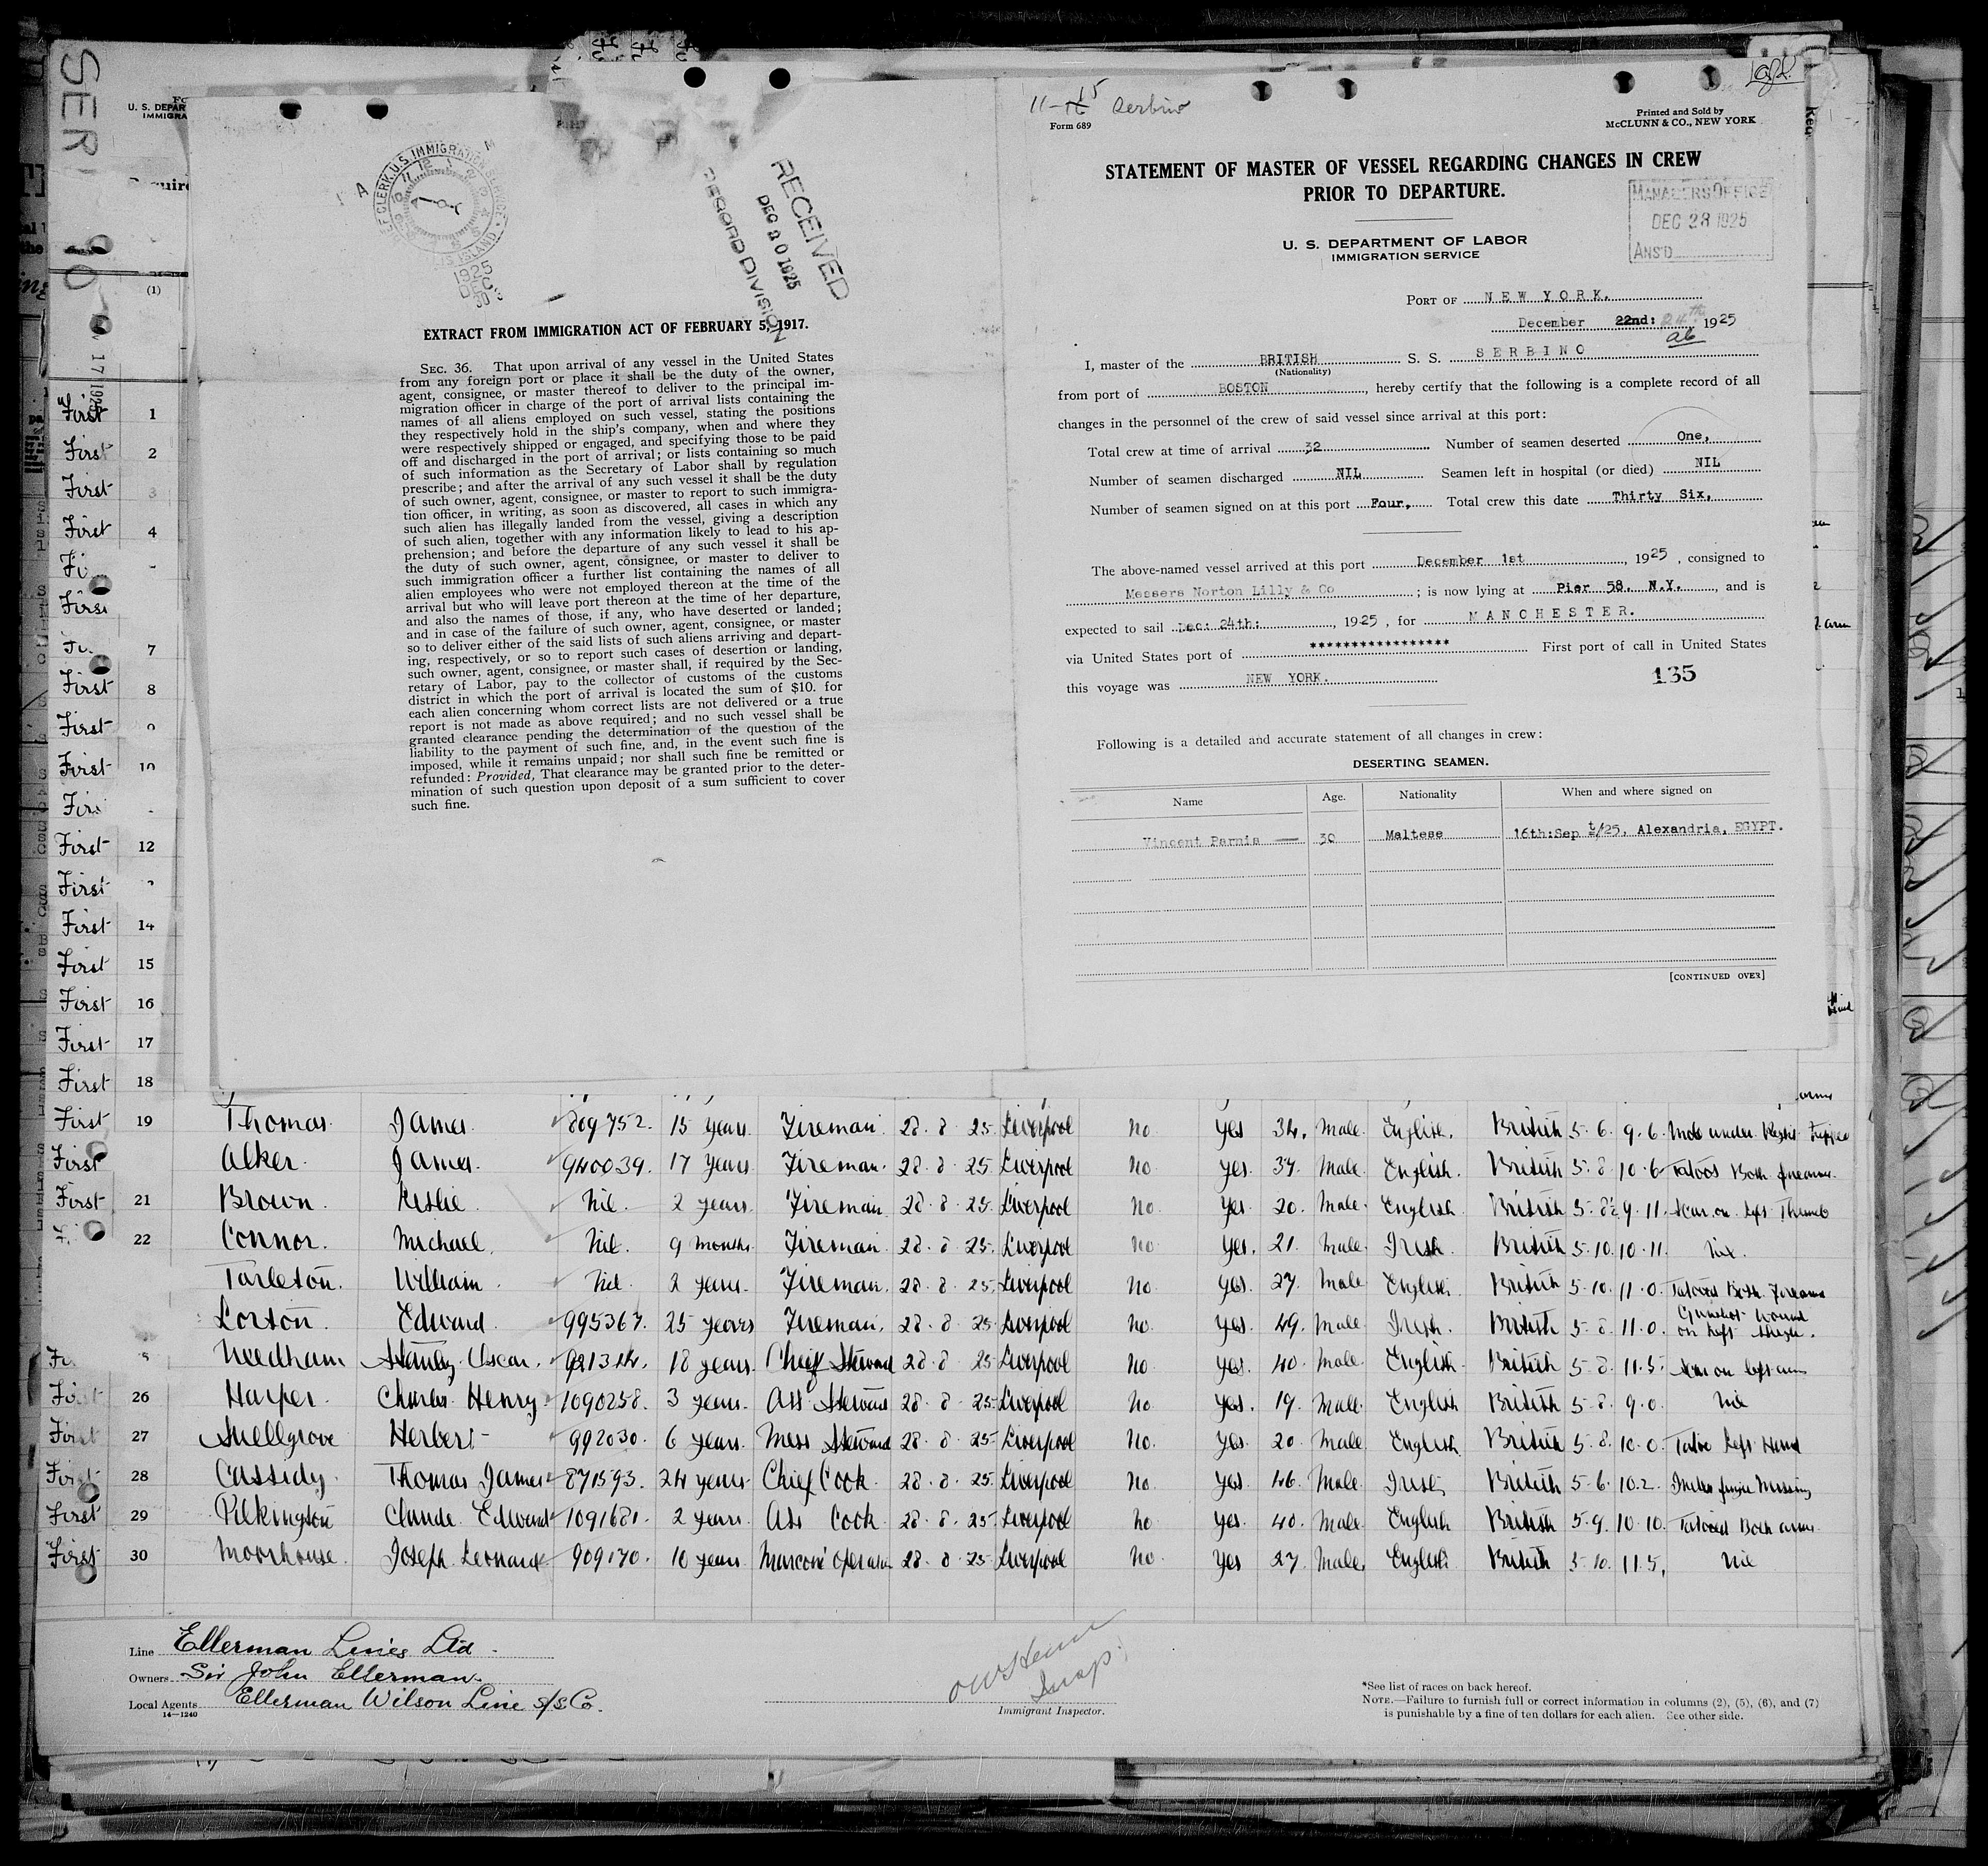 SER
U. S. DEPAR
IMMIGRA
(1)
EXTRACT FROM IMMIGRATION ACT OF FEBRUARY 5, 1917.
SEC. 36. That upon arrival of any vessel in the United States
from any foreign port or place it shall be the duty of the owner,
agent, consignee, or master thereof to deliver to the principal im-
migration officer in charge of the port of arrival lists containing the
names of all aliens employed on such vessel, stating the positions
they respectively hold in the ship's company, when and where they
were respectively shipped or engaged, and specifying those to be paid
off and discharged in the port of arrival; or lists containing so much
of such information as the Secretary of Labor shall by regulation
prescribe; and after the arrival of any such vessel it shall be the duty
of such owner, agent, consignee, or master to report to such immigra-
tion officer, in writing, as soon as discovered, all cases in which any
such alien has illegally landed from the vessel, giving a description
of such alien, together with any information likely to lead to his ap-
prehension; and before the departure of any such vessel it shall be
the duty of such owner, agent, consignee, or master to deliver to
such immigration officer a further list containing the names of all
alien employees who were not employed thereon at the time of the
arrival but who will leave port thereon at the time of her departure,
and also the names of those, if any, who have deserted or landed;
and in case of the failure of such owner, agent, consignee, or master
so to deliver either of the said lists of such aliens arriving and depart-
ing, respectively, or so to report such cases of desertion or landing,
such owner, agent, consignee, or master shall, if required by the Sec-
retary of Labor, pay to the collector of customs of the customs
district in which the port of arrival is located the sum of $10. for
each alien concerning whom correct lists are not delivered or a true
report is not made as above required; and no such vessel shall be
granted clearance pending the determination of the question of the
liability to the payment of such fine, and, in the event such fine is
imposed, while it remains unpaid; nor shall such fine be remitted or
refunded: Provided, That clearance may be granted prior to the deter-
mination of such question upon deposit of a sum sufficient to cover
such fine.
RECEIVED
DEC 20 1925
RECORD DIVISION
1925
DEC
30
Serbino
Form 689
Printed and Sold by
McCLUNN & CO., NEW YORK
STATEMENT OF MASTER OF VESSEL REGARDING CHANGES IN CREW
PRIOR TO DEPARTURE.
MANAGERS OFFICE
DEC 28 1925
ANS'D
U. S. DEPARTMENT OF LABOR
IMMIGRATION SERVICE
PORT OF NEW YORK.
December 22nd: 24th 1925
I, master of the BRITISH S. S. SERBINO
(Nationality)
from port of BOSTON, hereby certify that the following is a complete record of all
changes in the personnel of the crew of said vessel since arrival at this port:
Total crew at time of arrival 32 Number of seamen deserted One,
Number of seamen discharged NIL Seamen left in hospital (or died) NIL
Number of seamen signed on at this port Four, Total crew this date Thirty Six,
The above-named vessel arrived at this port December 1st, 1925, consigned to
Messers Norton Lilly & Co; is now lying at Pier 58. N.Y., and is
expected to sail Dec: 24th:, 1925, for MANCHESTER.
via United States port of ****************** First port of call in United States
this voyage was NEW YORK. 135
Following is a detailed and accurate statement of all changes in crew:
DESERTING SEAMEN.
Name Age. Nationality When and where signed on
Vincent Parnis — 30 Maltese 16th:Sept/25, Alexandria, EGYPT.
[CONTINUED OVER]
First 1
First 2
First 3
First 4
First 7
First 8
First
First 10
First 12
First
First 14
First 15
First 16
First 17
First 18
First 19 Thomas James 809752. 15 years Fireman 28. 8 25 Liverpool No yes 34. Male English. British 5-6. 9.6. Mole under Right
First Alker James 940039. 17 years Fireman. 28. 8 25 Liverpool No yes. 37. Male English. British 5-8. 10.6 Tatoos Both forearms.
First 21 Brown Leslie Nil. 2 years Fireman 28. 8 25. Liverpool No yes. 20. Male. English British 5-8½ 9.11. Scar on left Thumb
22 Connor. Michael. Nil. 9 months Fireman 28. 8 25. Liverpool No yes. 21. Male. Irish. British 5.10. 10.11. Nil.
Tarleton. William Nil 2 years Fireman. 28. 8 25. Liverpool No yes. 27. Male English British 5-10. 11.0. Tatooed Both Forearms
Lorton. Edward 995367. 25 years Fireman. 28. 8 25 Liverpool No. yes. 49. Male. Irish. British 5-8. 11.0. Gunshot wound on left thigh.
Needham Stanley Oscar. 921314. 18 years. Chief Steward 28. 8 25 Liverpool No yes. 40. Male. English British 5-8. 11.5. Scar on left arm
First 26 Harper Charles Henry 1090258. 3 years. Ass Steward 28. 8 25 Liverpool No yes. 19. Male. English British 5-8. 9.0. Nil
First 27 Snellgrove Herbert 992030. 6 years. Mess Steward 28. 8 25 Liverpool No. yes. 20. Male English British 5.8. 10.0. Tatoo Left Hand
First 28 Cassidy. Thomas James 871593. 24 years Chief Cook. 28. 8. 25 Liverpool No yes. 46. Male. Irish British 5-6. 10.2. Index finger Missing
First 29 Pilkington Claude Edward 1091681. 2 years. Ass Cook 28. 8. 25 Liverpool No yes. 40. Male. English British 5-9. 10.10. Tatooed Both arms.
First 30 Moorhouse. Joseph Leonard 909170. 10 years Marconi Operator 28. 8 25 Liverpool No. yes 27. Male. English British 5.10. 11.5. Nil
Line Ellerman Lines Ltd.
Owners Sir John Ellerman.
Local Agents Ellerman Wilson Line S/S Co.
14—1240
Insp.
Immigrant Inspector.
*See list of races on back hereof.
NOTE.—Failure to furnish full or correct information in columns (2), (5), (6), and (7)
is punishable by a fine of ten dollars for each alien. See other side.